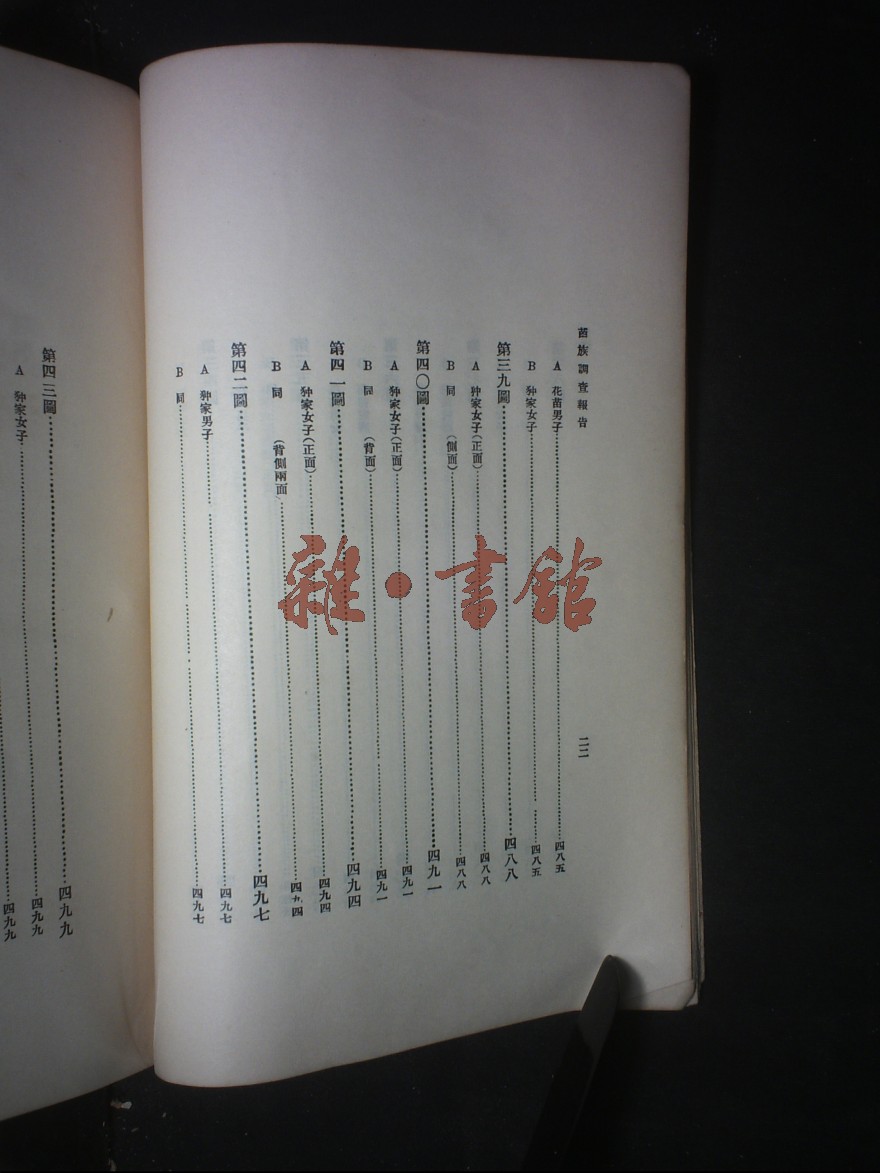 苗族調查報告
二二
A 花苗男子……四八五
B 狆家女子……四八五
第三九圖……四八八
A 狆家女子(正面)……四八八
B 同 (側面)……四八八
第四〇圖……四九一
A 狆家女子(正面)……四九一
B 同 (背面)……四九一
第四一圖……四九四
A 狆家女子(正面)……四九四
B 同 (背側兩面)……四九四
第四二圖……四九七
A 狆家男子……四九七
B 同……四九七
第四三圖……四九九
A 狆家女子……四九九
四九九
雜·書館